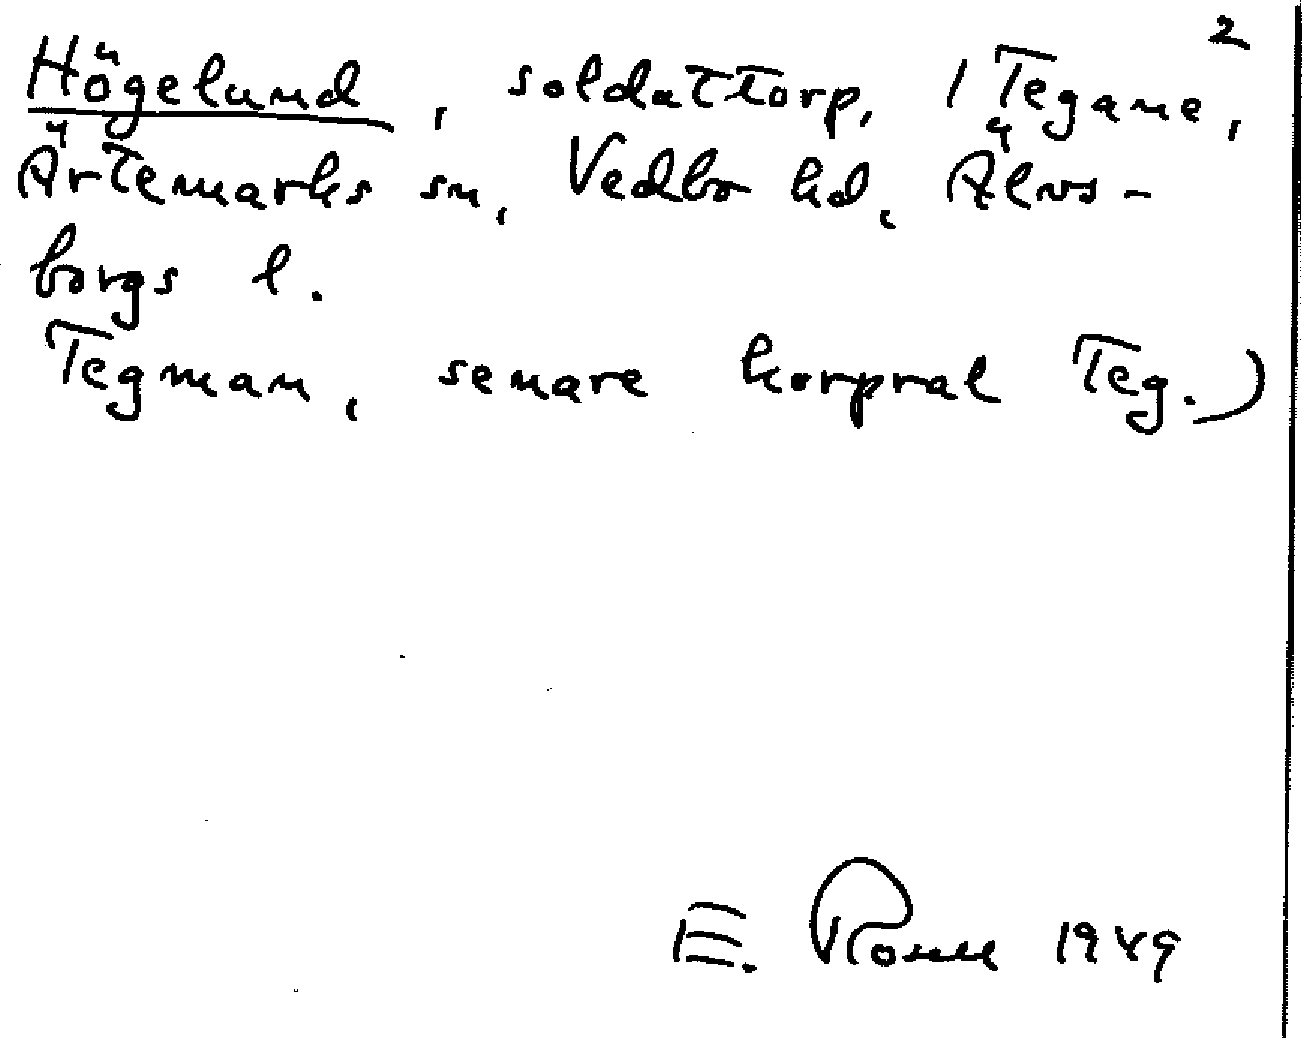 2
Högelund, soldattorp, 1 Tegane,
Ärtemarks sn, Vedbo hd, Älvs-
borgs l.
Tegman, senare korpral Teg.)
E. 1949